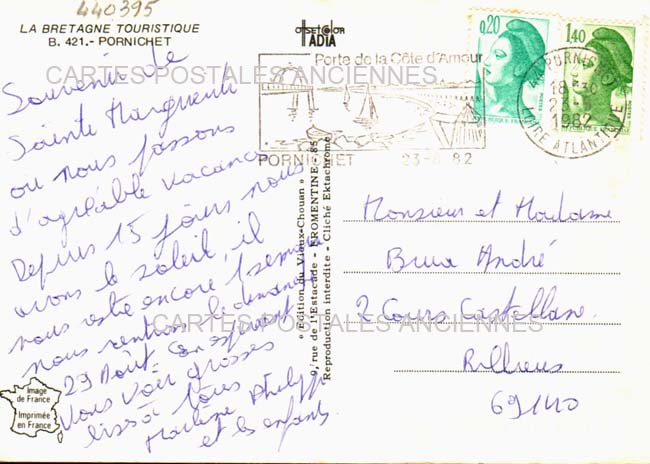 440395
LA BRETAGNE TOURISTIQUE
B. 421.- PORNICHET
Souvenir de
Sainte Marguerite
où nous passons
d'agréable vacances
Depuis 15 jours nous
avons le soleil, il
nous reste encore 1 semaine
nous rentrons le dimanche
29 Août. En espérant
vous voir grosses
bises à tous
Marlène Philippe
et les enfants.
Image
de France
Imprimée
en France
offset color
IADIA
« Edition du Vieux-Chouan »
9, rue de l'Estacade - FROMENTINE - 85
Reproduction interdite - Cliché Ektachrome
Porte de la Côte d'Amour
PORNICHET 23-8-82
0,20
1,40
44 PORNICHET
18 H 30
23 - 8
1982
LOIRE ATLANTIQUE
Monsieur et Madame
Brua André
2 Cours Castellane
Rillieux
69140
CARTES POSTALES ANCIENNES
CARTES POSTALES ANCIENNES